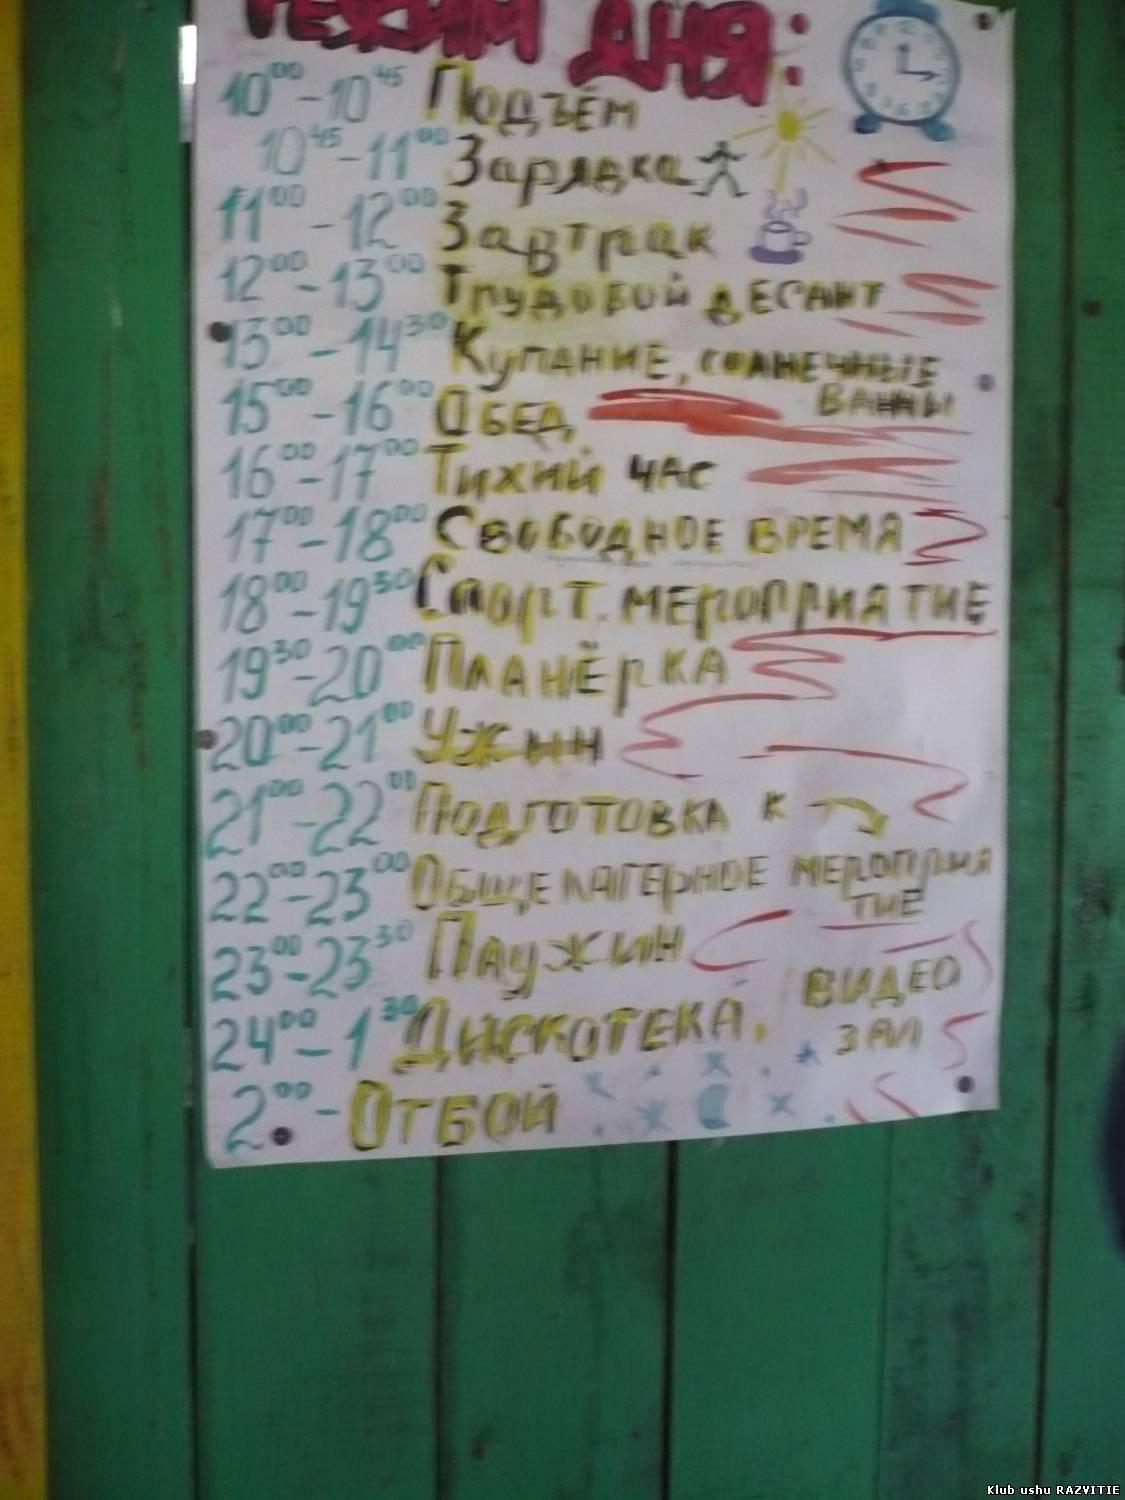 РЕЖИМ ДНЯ:
10⁰⁰-10⁴⁵ Подъём
10⁴⁵-11⁰⁰ Зарядка
11⁰⁰-12⁰⁰ Завтрак
12⁰⁰-13⁰⁰ Трудовой десант
13⁰⁰-14³⁰ Купание, солнечные
ванны
15⁰⁰-16⁰⁰ Обед
16⁰⁰-17⁰⁰ Тихий час
17⁰⁰-18⁰⁰ Свободное время
18⁰⁰-19³⁰ Спорт. мероприятие
19³⁰-20⁰⁰ Планёрка
20⁰⁰-21⁰⁰ Ужин
21⁰⁰-22⁰⁰ Подготовка к
22⁰⁰-23⁰⁰ Общелагерное мероприя
тие
23⁰⁰-23³⁰ Паужин
24⁰⁰-1³⁰ Дискотека, видео
зал
2⁰⁰- Отбой
Klub ushu RAZVITIE